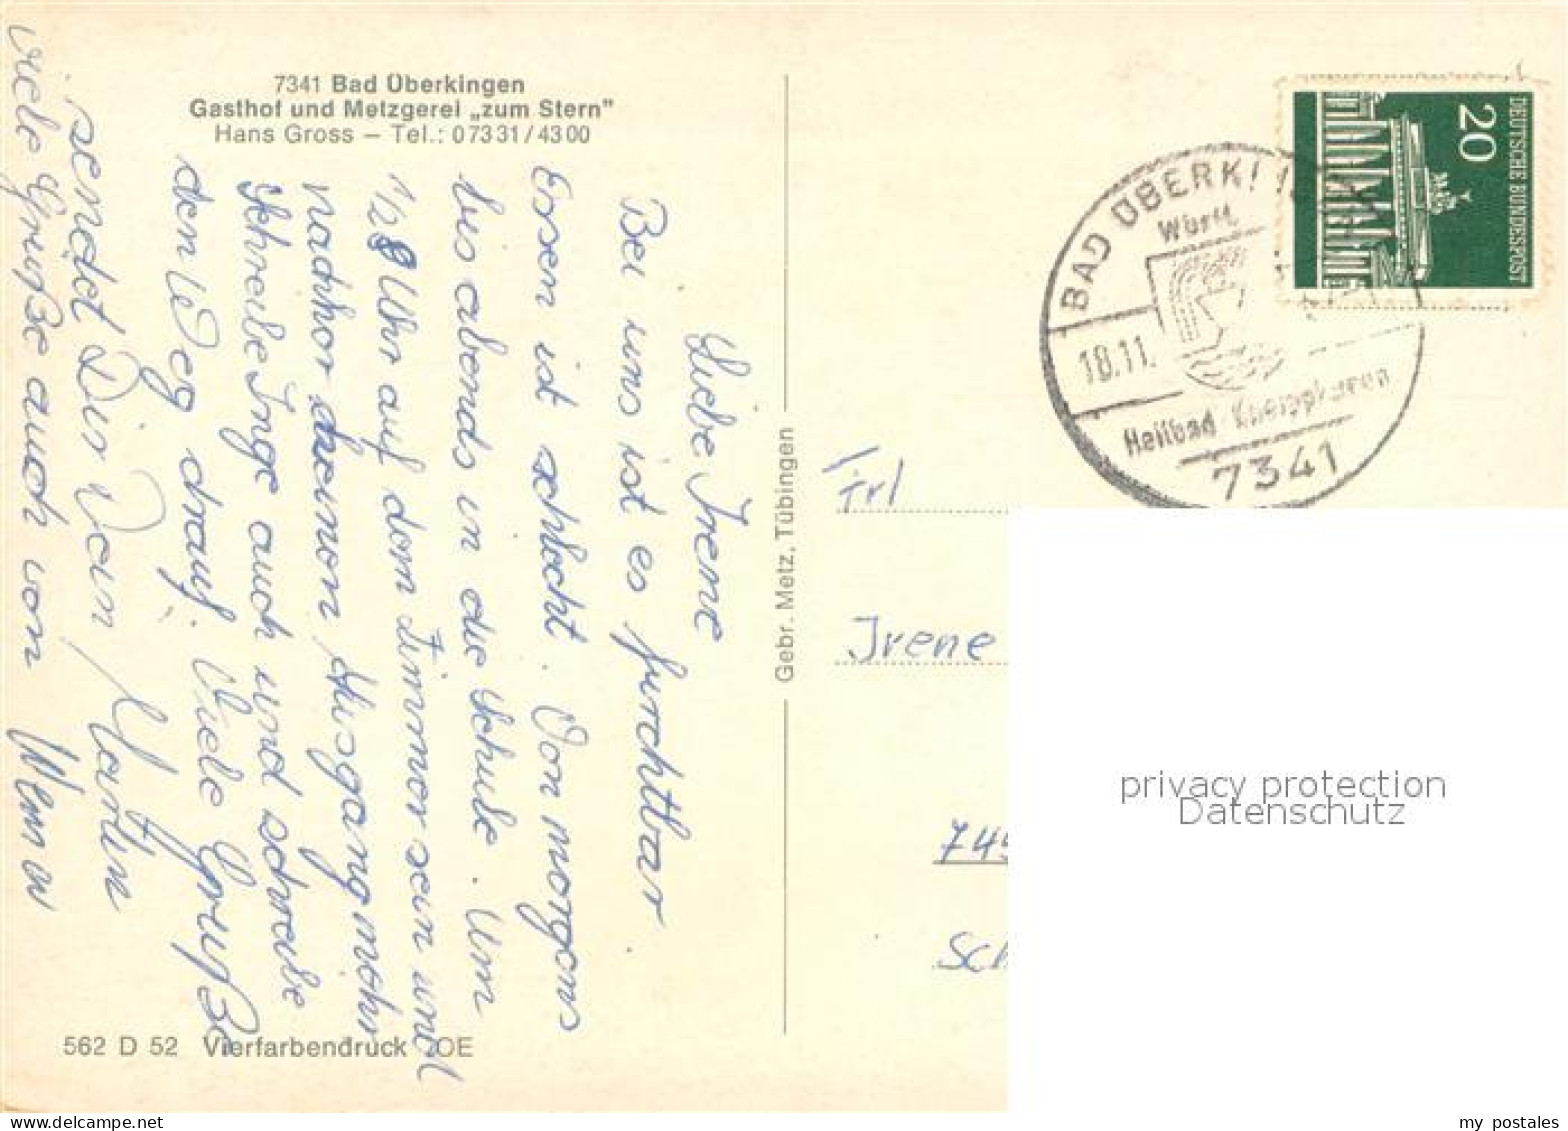 7341 Bad Überkingen
Gasthof und Metzgerei „zum Stern"
Hans Gross — Tel.: 07331/4300
Liebe Irene
Bei uns ist es furchtbar.
Essen ist schlecht. Von morgens
bis abends in die Schule. Um
1/28 Uhr auf dem Zimmer sein und
nachher keinen Ausgang mehr
Schreibe Inge auch und schreibe
den Weg drauf. Viele Grüße
sendet Dir Dein Martin
viele Grüße auch von
562 D 52 Vierfarbendruck OE
Gebr. Metz, Tübingen
DEUTSCHE BUNDESPOST
20
BAD ÜBERKI
Württ
18.11.
Heilbad
7341
Frl
Irene
745
Sch
privacy protection
Datenschutz
my postales